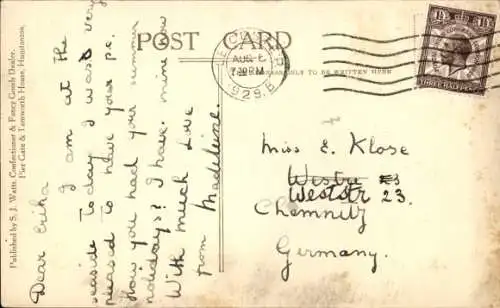 Published by S. J. Watts, Confectioner & Fancy Goods Dealer,
Pier Gate & Tamworth House, Hunstanton.
Dear Erika
I am at the
seaside today I was very
pleased to have your p.c.
How you had your summer
holidays? I have mine now
With much Love
from Madeleine.
POST CARD
AUG 6
7 30 PM
1929
TO BE WRITTEN HERE
1½D
THREE HALFPENCE
Miss E. Klose
Weststr 23.
Chemnitz
Germany.